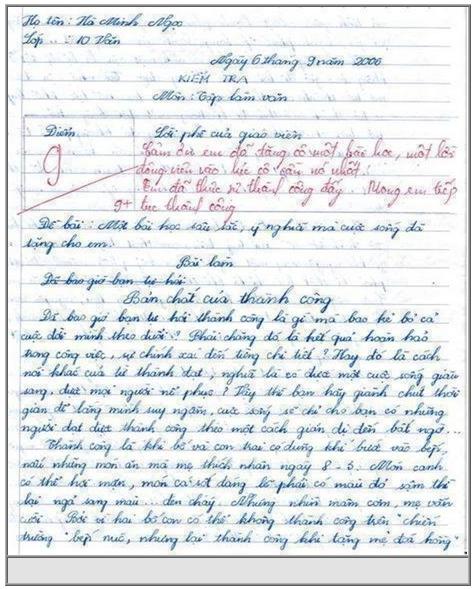 Họ tên: Hà Minh Ngọc
Lớp : 10 Văn
Ngày 6 tháng 9 năm 2006
KIỂM TRA
Môn: Tập làm văn
Điểm
Lời phê của giáo viên
9
Cảm ơn em đã tặng cô một bài học, một lời
động viên vào lúc cô cần nó nhất!
Em đã thực sự thành công đấy. Mong em tiếp
9+ tục thành công
Đề bài: Một bài học sâu sắc, ý nghĩa mà cuộc sống đã
tặng cho em.
Bài làm
Đã bao giờ bạn tự hỏi
Bản chất của thành công
Đã bao giờ bạn tự hỏi thành công là gì mà bao kẻ bỏ cả
cuộc đời mình theo đuổi? Phải chăng đó là kết quả hoàn hảo
trong công việc, sự chính xác đến từng chi tiết? Hay đó là cách
nói khác của từ thành đạt, nghĩa là có được một cuộc sống giàu
sang, được mọi người nể phục? Vậy thì bạn hãy giành chút thời
gian để lắng mình suy ngẫm, cuộc sống sẽ chỉ cho bạn có những
người đạt được thành công theo một cách giản dị đến bất ngờ...
Thành công là khi bố và con trai có dũng khí bước vào bếp,
nấu những món ăn mà mẹ thích nhân ngày 8-3. Món canh
có thể hơi mặn, món cá sốt đáng lẽ phải có màu đỏ sậm thì
lại ngả sang màu... đen cháy. Nhưng nhìn mâm cơm, mẹ vẫn
cười. Bởi vì hai bố con có thể không thành công trên "chiến
trường" bếp núc, nhưng lại thành công khi tặng mẹ "đoá hồng"